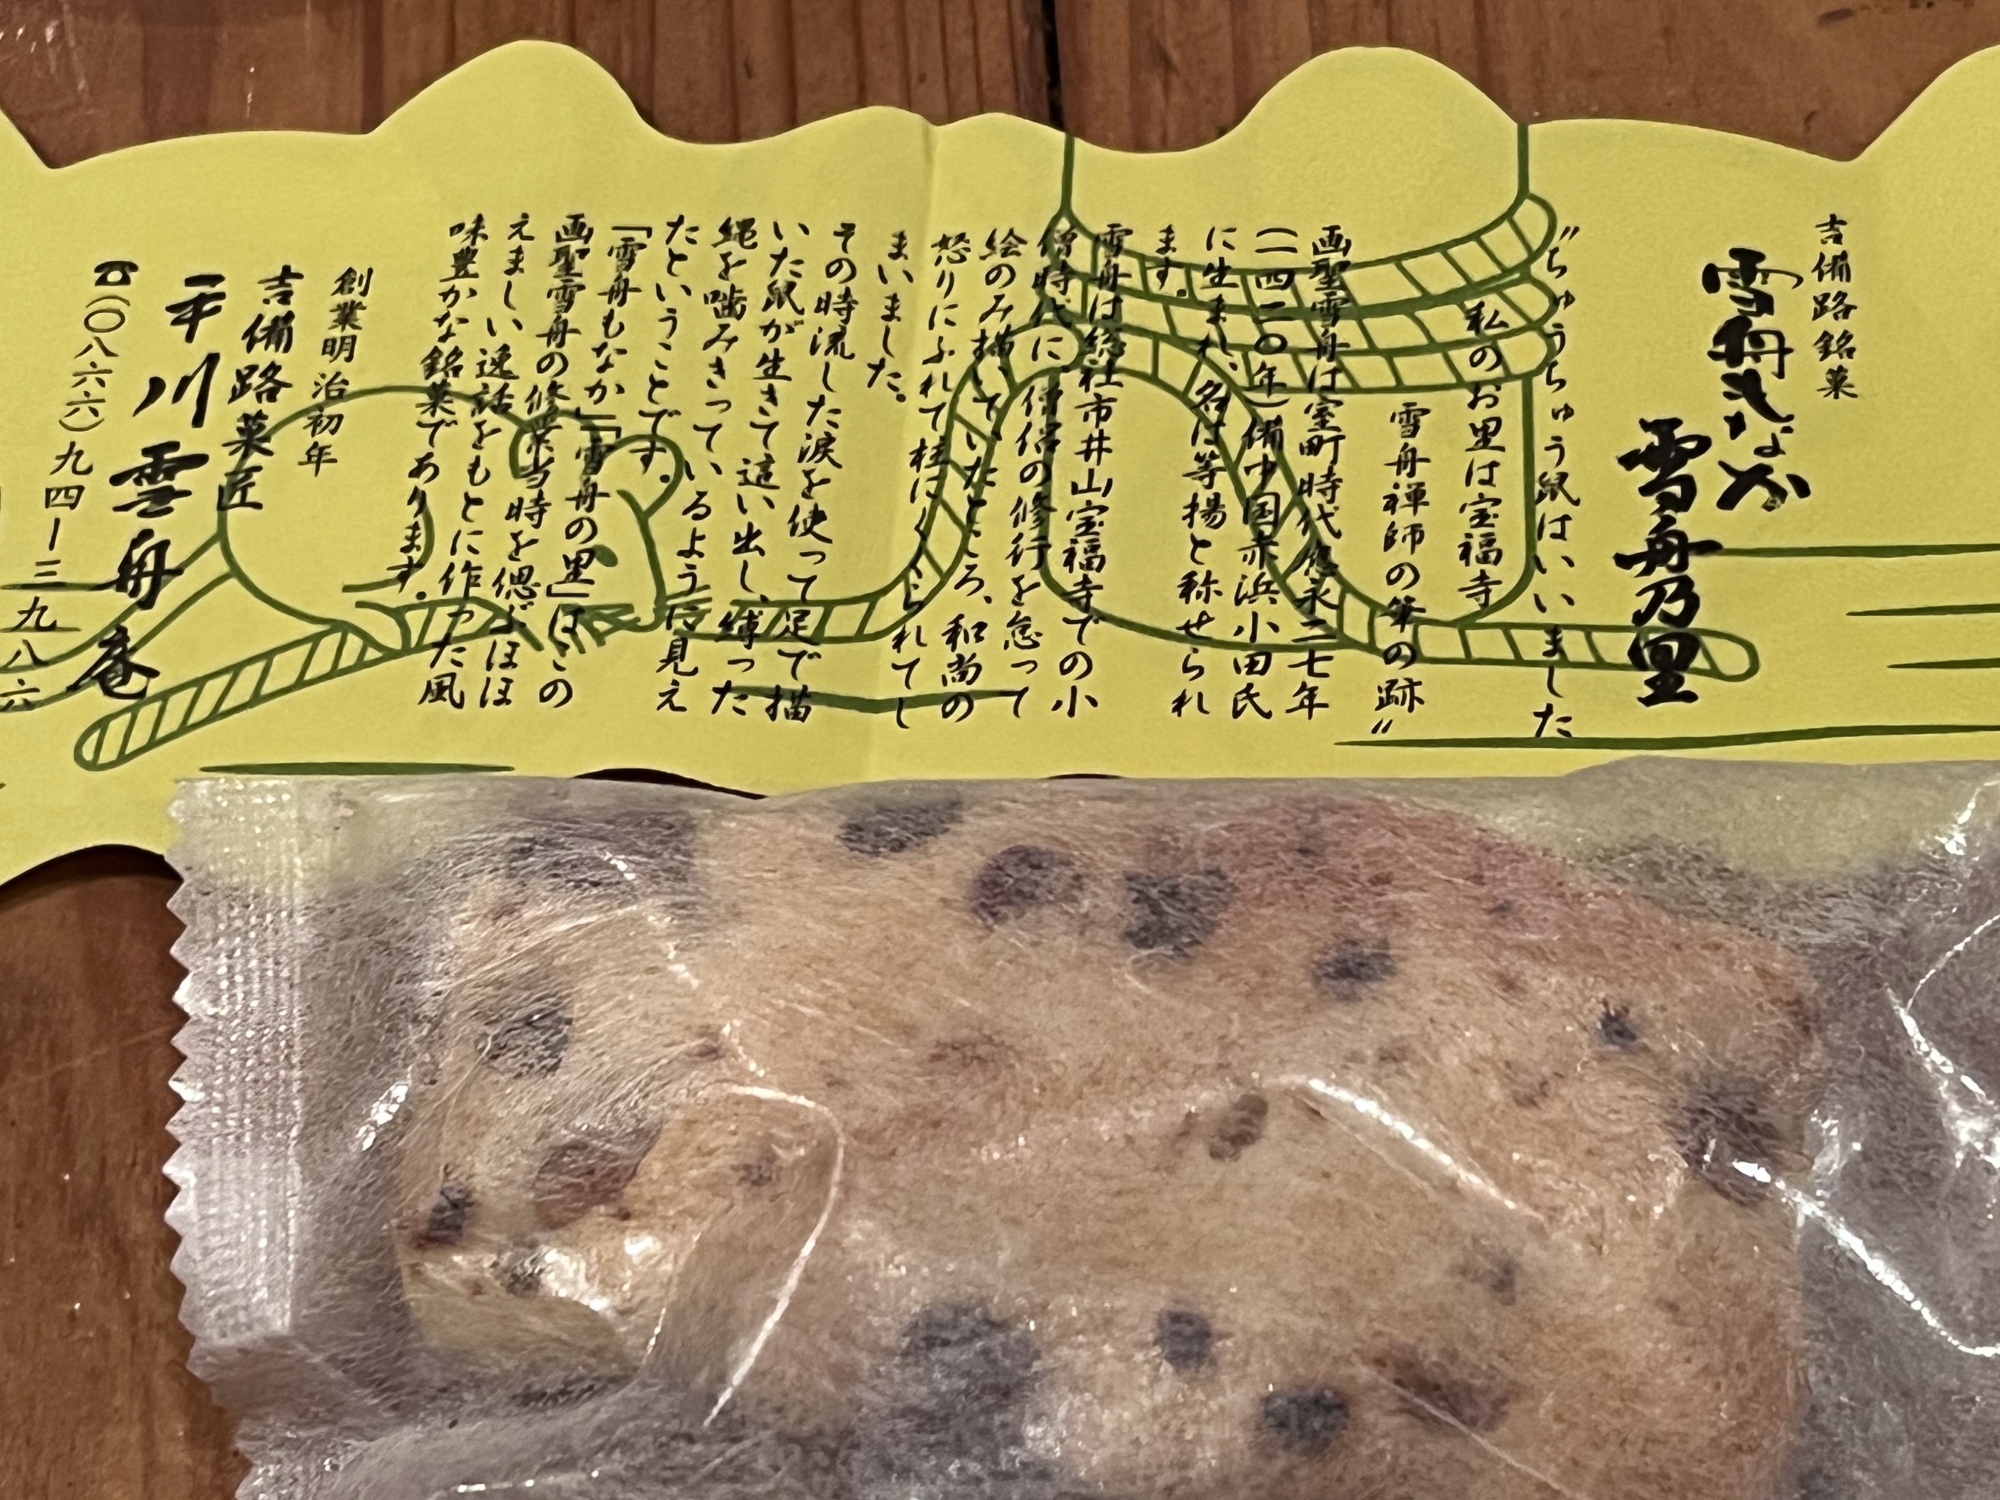 吉備路銘菓
雪舟もなか
雪舟乃里
〝ちゅうちゅう鼠はいいました
私のお里は宝福寺
雪舟禅師の筆の跡〟
画聖雪舟は室町時代應永二七年
(一四二〇年)備中国赤浜小田氏
に生まれ、名は等揚と称せられ
ます。
雪舟は総社市井山宝福寺での小
僧時代に、僧侶の修行を怠って
絵のみ描いていたところ、和尚の
怒りにふれて柱にくくられてし
まいました。
その時流した涙を使って足で描
いた鼠が生きて這い出し、縛った
縄を噛みきっているように見え
たということです。
「雪舟もなか」「雪舟の里」は、この
画聖雪舟の修業当時を偲ぶほほ
えましい逸話をもとに作った風
味豊かな銘菓であります。
創業明治初年
吉備路菓匠
平川雪舟庵
☎(〇八六六)九四ー三九八六